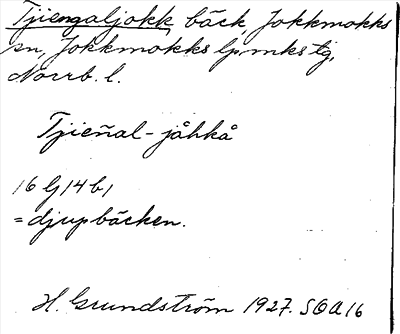 Tjiengaljokk bäck, Jokkmokks
sn, Jokkmokks lpmks tg,
Norrb. l.
Tjieñal-jåhkå
16 G 14 b 1
= djupbäcken.
H. Grundström 1927. SOA 16